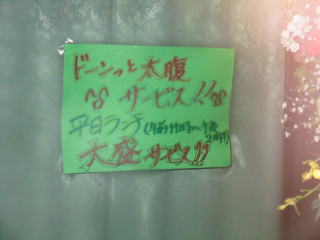 ドーンっと太腹
サービス!!
平日ランチ(午前11時〜午後
2時)
大盛サービス!!